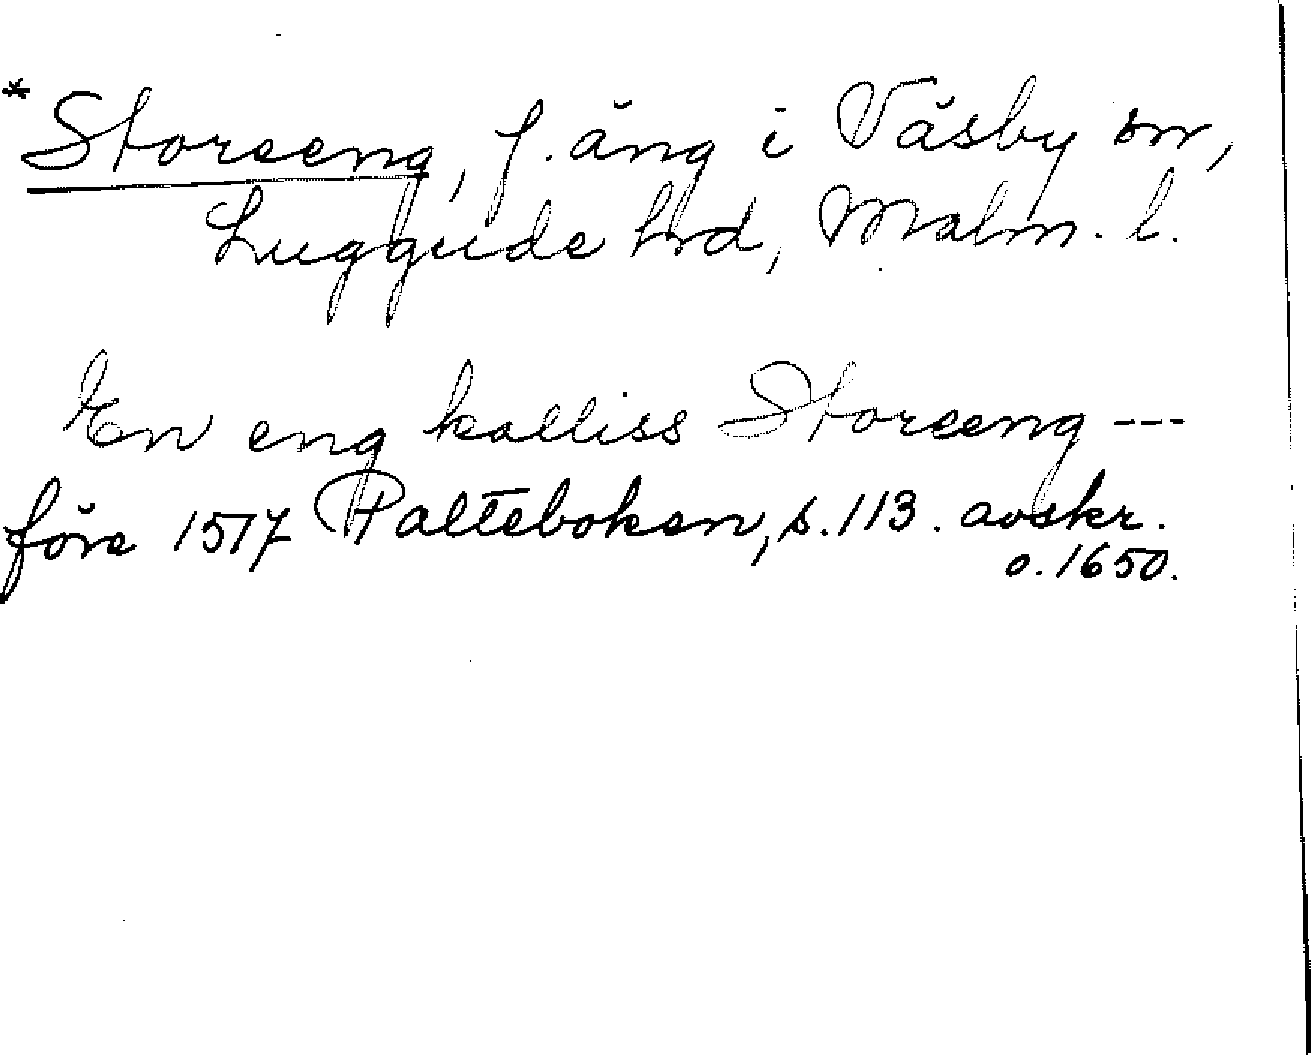 *Storeeng, f. äng i Väsby sn,
Luggude hrd, Malm. l.
En eng kalliss Storeeng ---
före 1517 Palteboken, s. 113. avskr.
o. 1650.